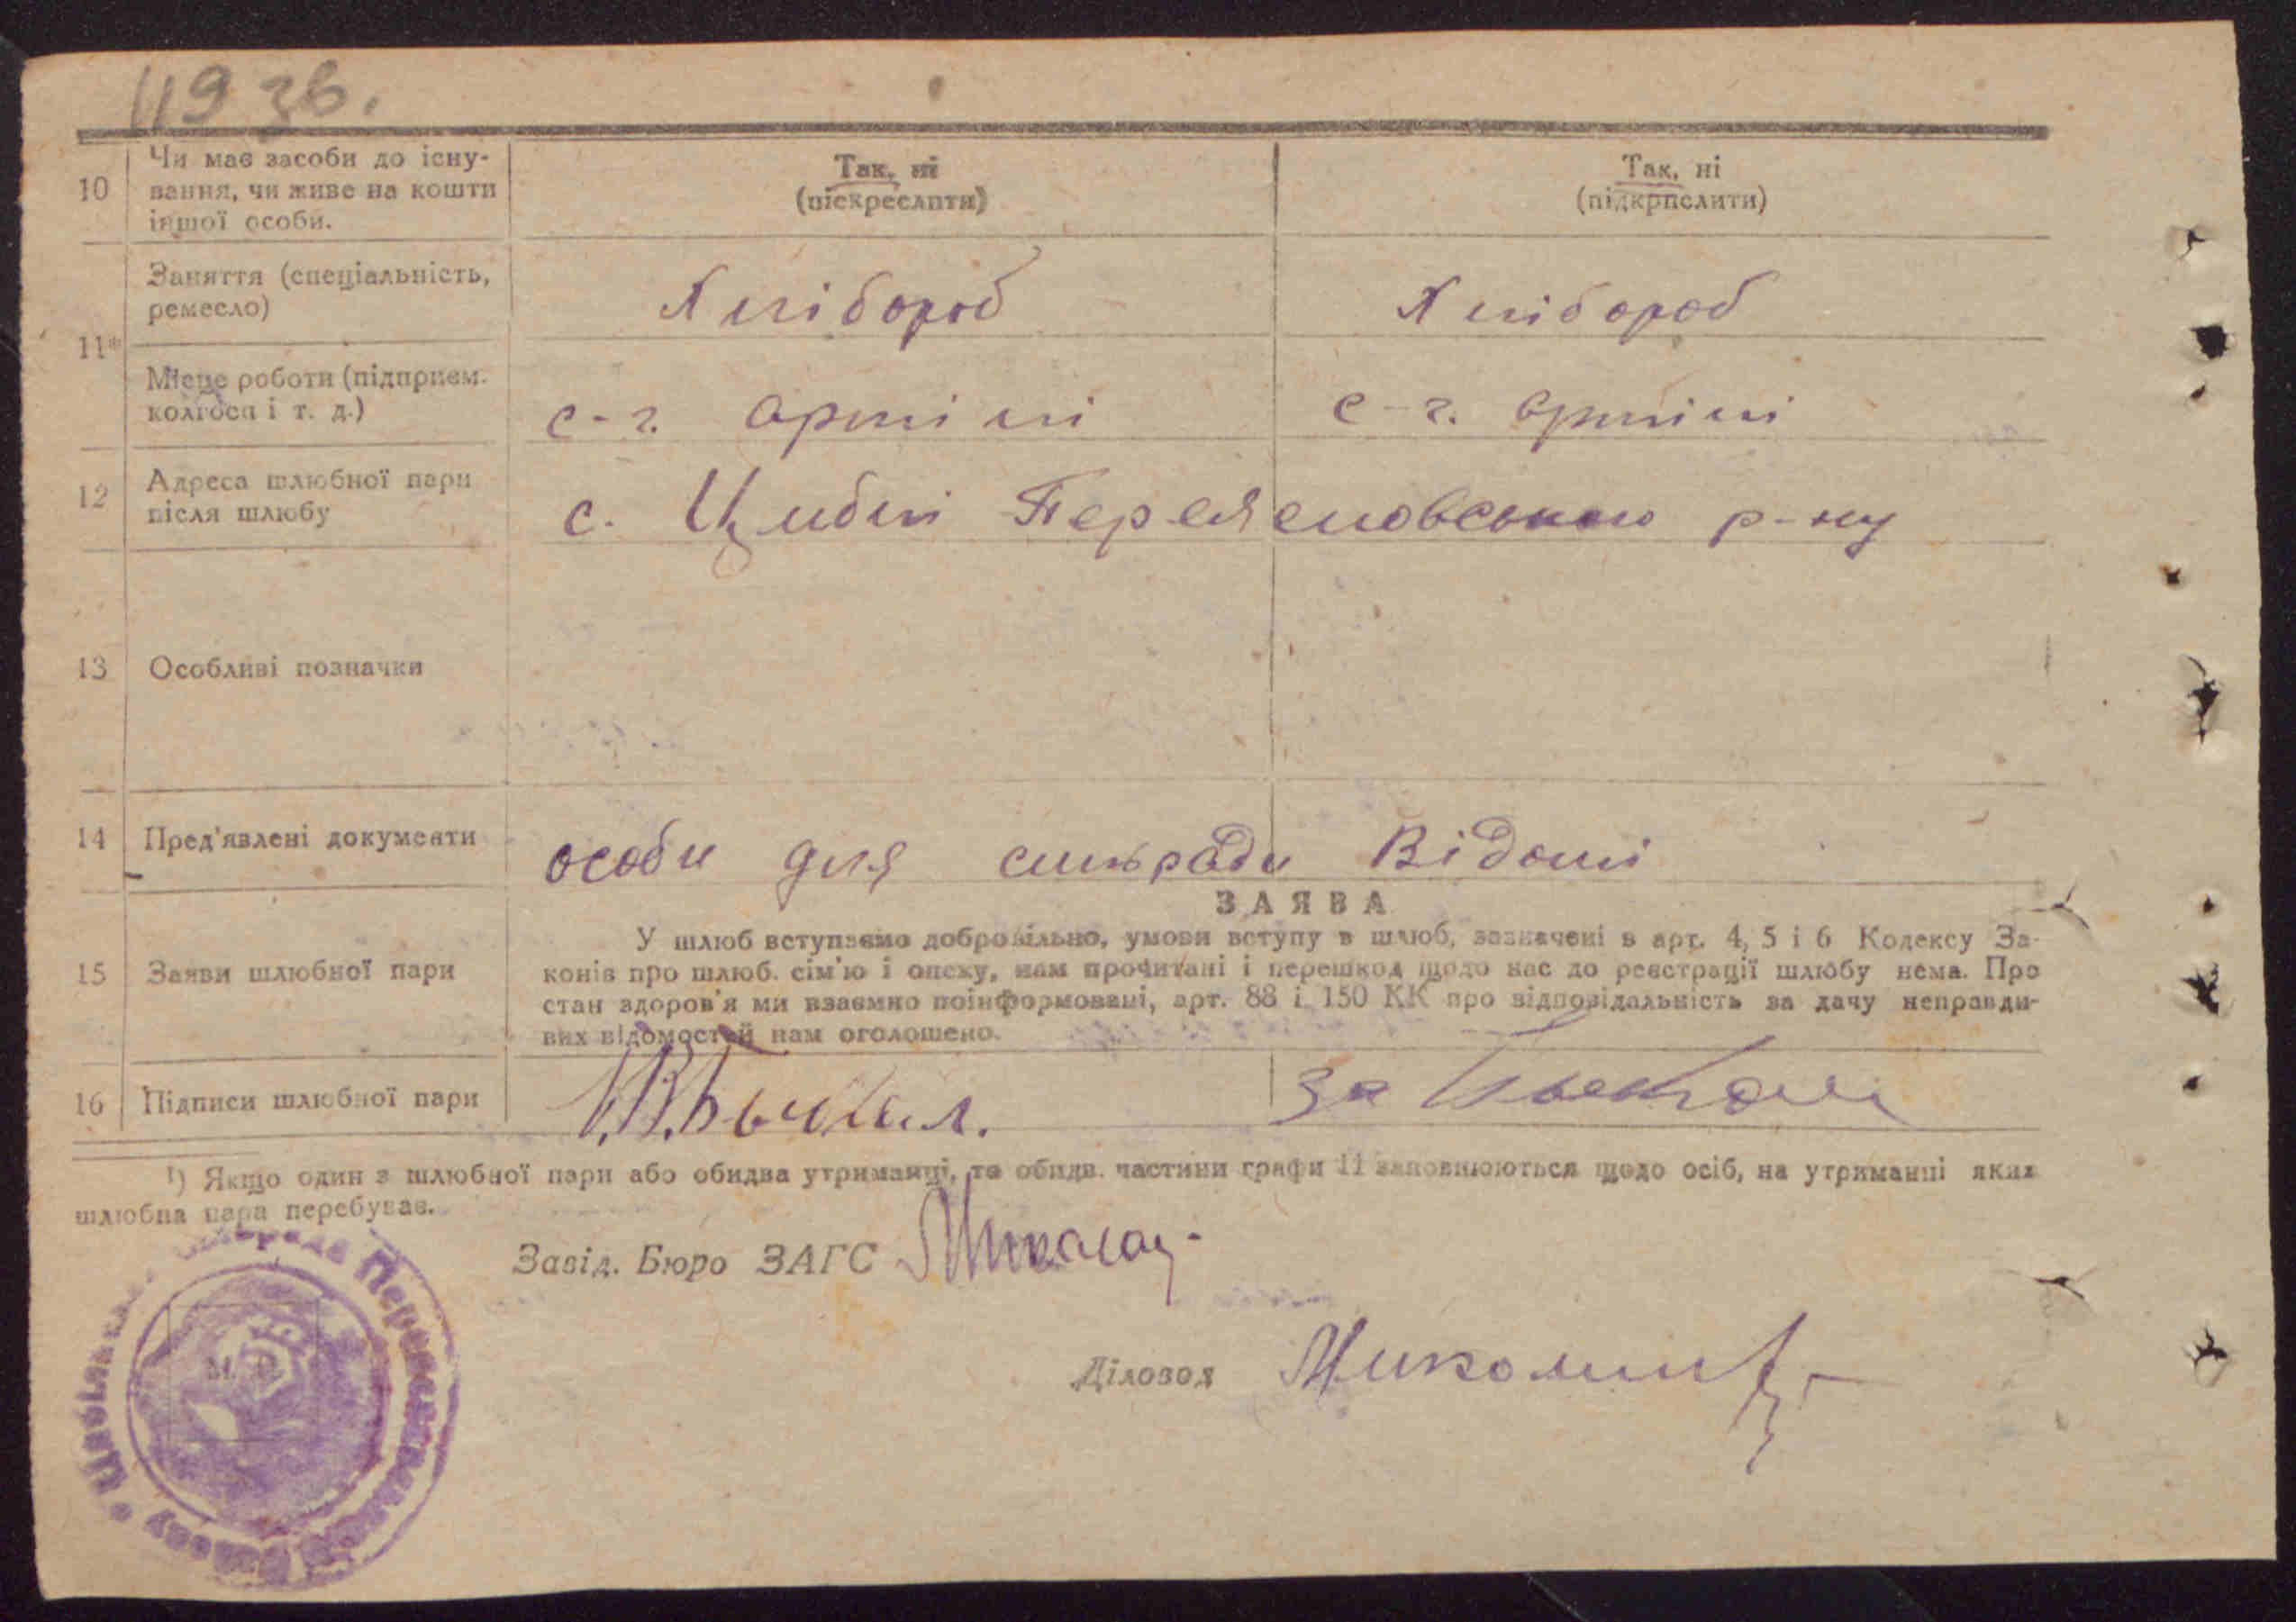 119 зв.
10
Чи має засоби до існу-
вання, чи живе на кошти
іншої особи.
Так, ні
(піскреслити)
Так, ні
(підкрпслити)
11*
Заняття (спеціальність,
ремесло)
Хлібороб
Хлібороб
Місце роботи (підприєм.
колгосп і т. д.)
с-г. артілі
с-г. артілі
12
Адреса шлюбної пари
після шлюбу
с. Циблі Переяславського р-ну
13
Особливі позначки
14
Пред'явлені документи
особи для сільради Відомі
15
Заяви шлюбної пари
ЗАЯВА
У шлюб вступаємо добровільно, умови вступу в шлюб, зазначені в арт. 4, 5 і 6 Кодексу За-
конів про шлюб. сім'ю і опеку, нам прочитані і перешкод щодо нас до реєстрації шлюбу нема. Про
стан здоров'я ми взаємно поінформовані, арт. 88 і 150 КК про відповідальність за дачу неправди-
вих відомостей нам оголошено.
16
Підписи шлюбної пари
за
¹) Якщо один з шлюбної пари або обидва утриманці, то обидв. частини графи 11 заповнюються щодо осіб, на утриманні яких
шлюбна пара перебуває.
Завід. Бюро ЗАГС
Діловод
М. П.